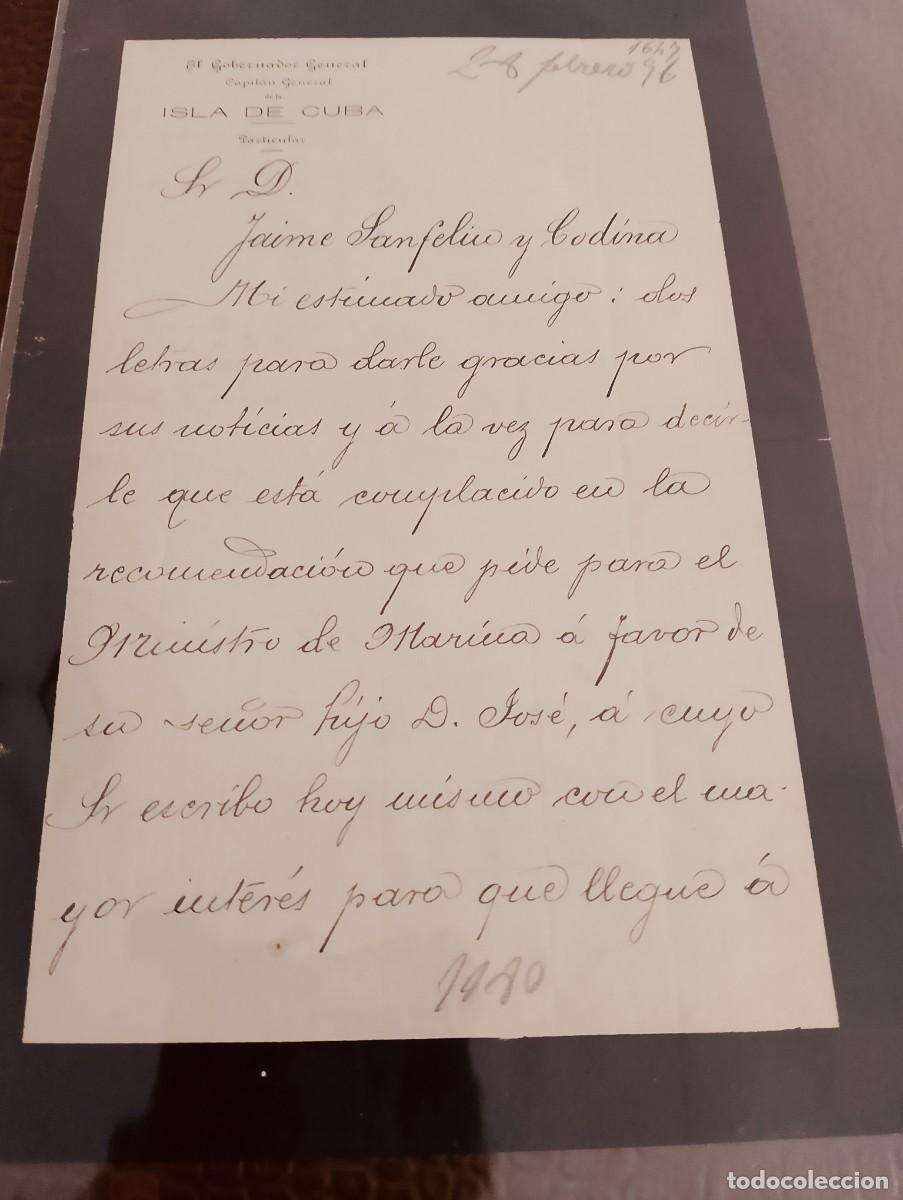 1647
28 febrero 96
El Gobernador General
Capitán General
de la
ISLA DE CUBA
Particular
Sr D.
Jaime Sanfeliu y Codina
Mi estimado amigo: dos
letras para darle gracias por
sus noticias y á la vez para decir-
le que está complacido en la
recomendación que pide para el
Ministro de Marina á favor de
su señor hijo D. José, á cuyo
Sr escribo hoy mismo con el ma-
yor interés para que llegue á
todocoleccion